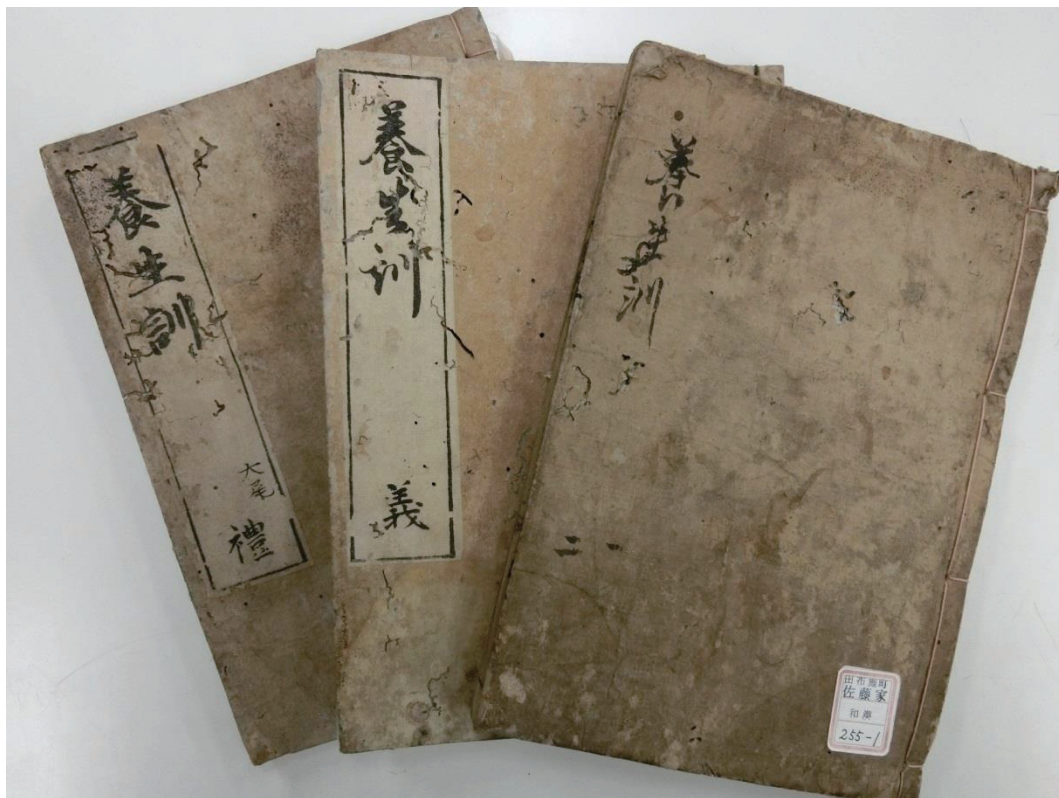 養生訓
大尾
禮
養生訓
義
養生訓
二 一
田布施町
佐藤家
和漢
255-1